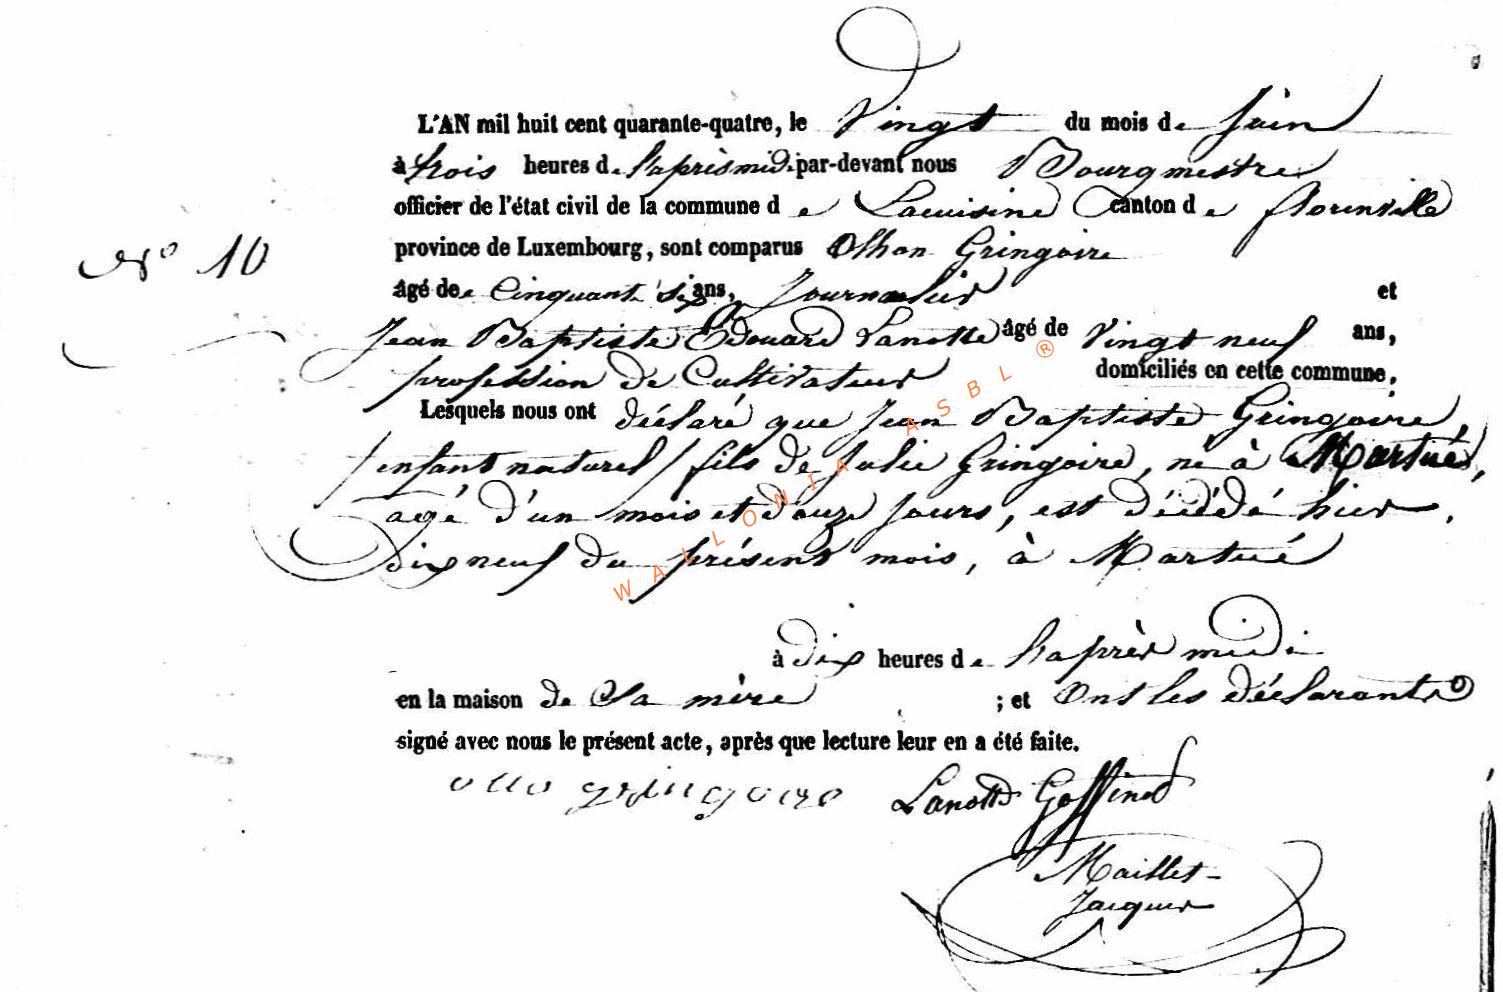 L'AN mil huit cent quarante-quatre, le Vingt du mois de Juin
à trois heures de l'après midi par-devant nous Bourgmestre
officier de l'état civil de la commune de Lacuisine canton de florenville
province de Luxembourg, sont comparus Othon Gringoire
N° 10
âgé de Cinquante six ans, Journalier et
Jean Baptiste Edouard Lanotte âgé de Vingt neuf ans,
profession de Cultivateur domiciliés en cette commune,
Lesquels nous ont déclaré que Jean Baptiste Gringoire,
/enfant naturel/ fils de Julie Gringoire, né à Martué,
agé d'un mois et douze jours, est décédé hier,
dix neuf du présent mois, à Martué
à dix heures de l'après midi
en la maison de Sa mère ; et Ont les déclarants
signé avec nous le présent acte, après que lecture leur en a été faite.
otto gringoire Lanotte Goffinet
Maillet-
Jacques
WALLONIA ASBL ®